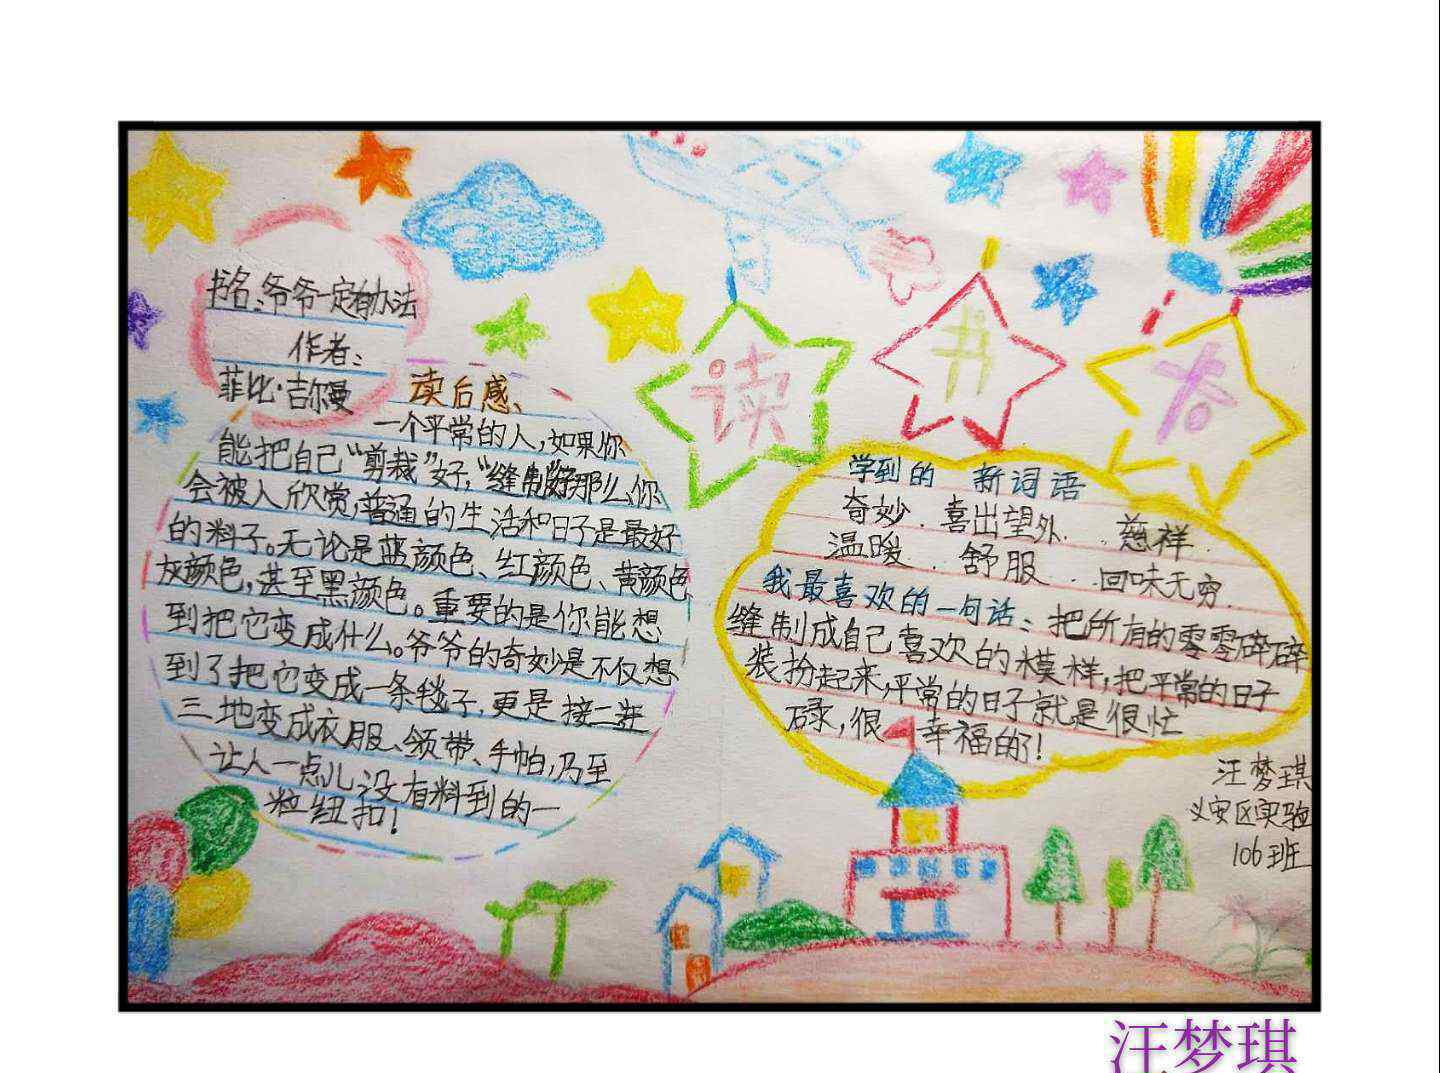 书名:爷爷一定有办法
作者:
菲比·吉尔曼
读书卡
读后感、
一个平常的人,如果你
能把自己“剪裁”好,“缝制”好那么,你
会被人欣赏,普通的生活和日子是最好
的料子。无论是蓝颜色、红颜色、黄颜色
灰颜色,甚至黑颜色。重要的是你能想
到把它变成什么。爷爷的奇妙是不仅想
到了把它变成一条毯子,更是接二连
三地变成衣服、领带、手帕,乃至
让人一点儿没有料到的一
粒纽扣!
学到的 新词语
奇妙.喜出望外..慈祥.
温暖.舒服..回味无穷.
我最喜欢的一句话:把所有的零零碎碎
缝制成自己喜欢的模样,把平常的日子
装扮起来,平常的日子就是很忙
碌,很 幸福的!
汪梦琪
义安区实验
106班
汪梦琪